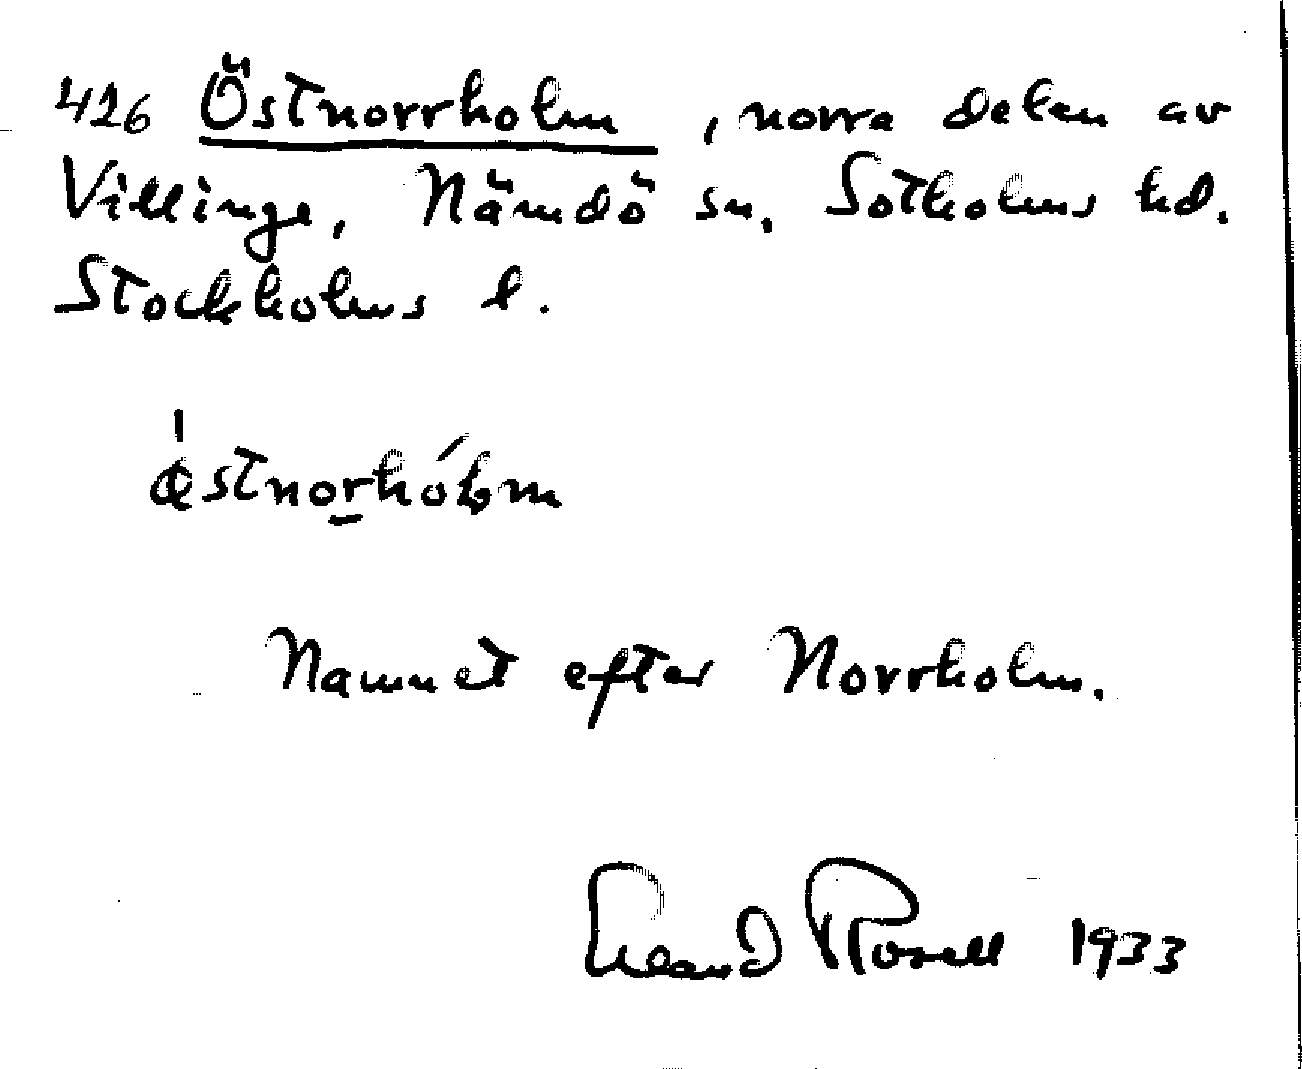 426 Östnorrholm, norra delen av
Villinge, Nämdö sn, Sotholms hd.
Stockholms l.
œ̍stnorhólm
Namnet efter Norrholm.
Erland Rosell 1933